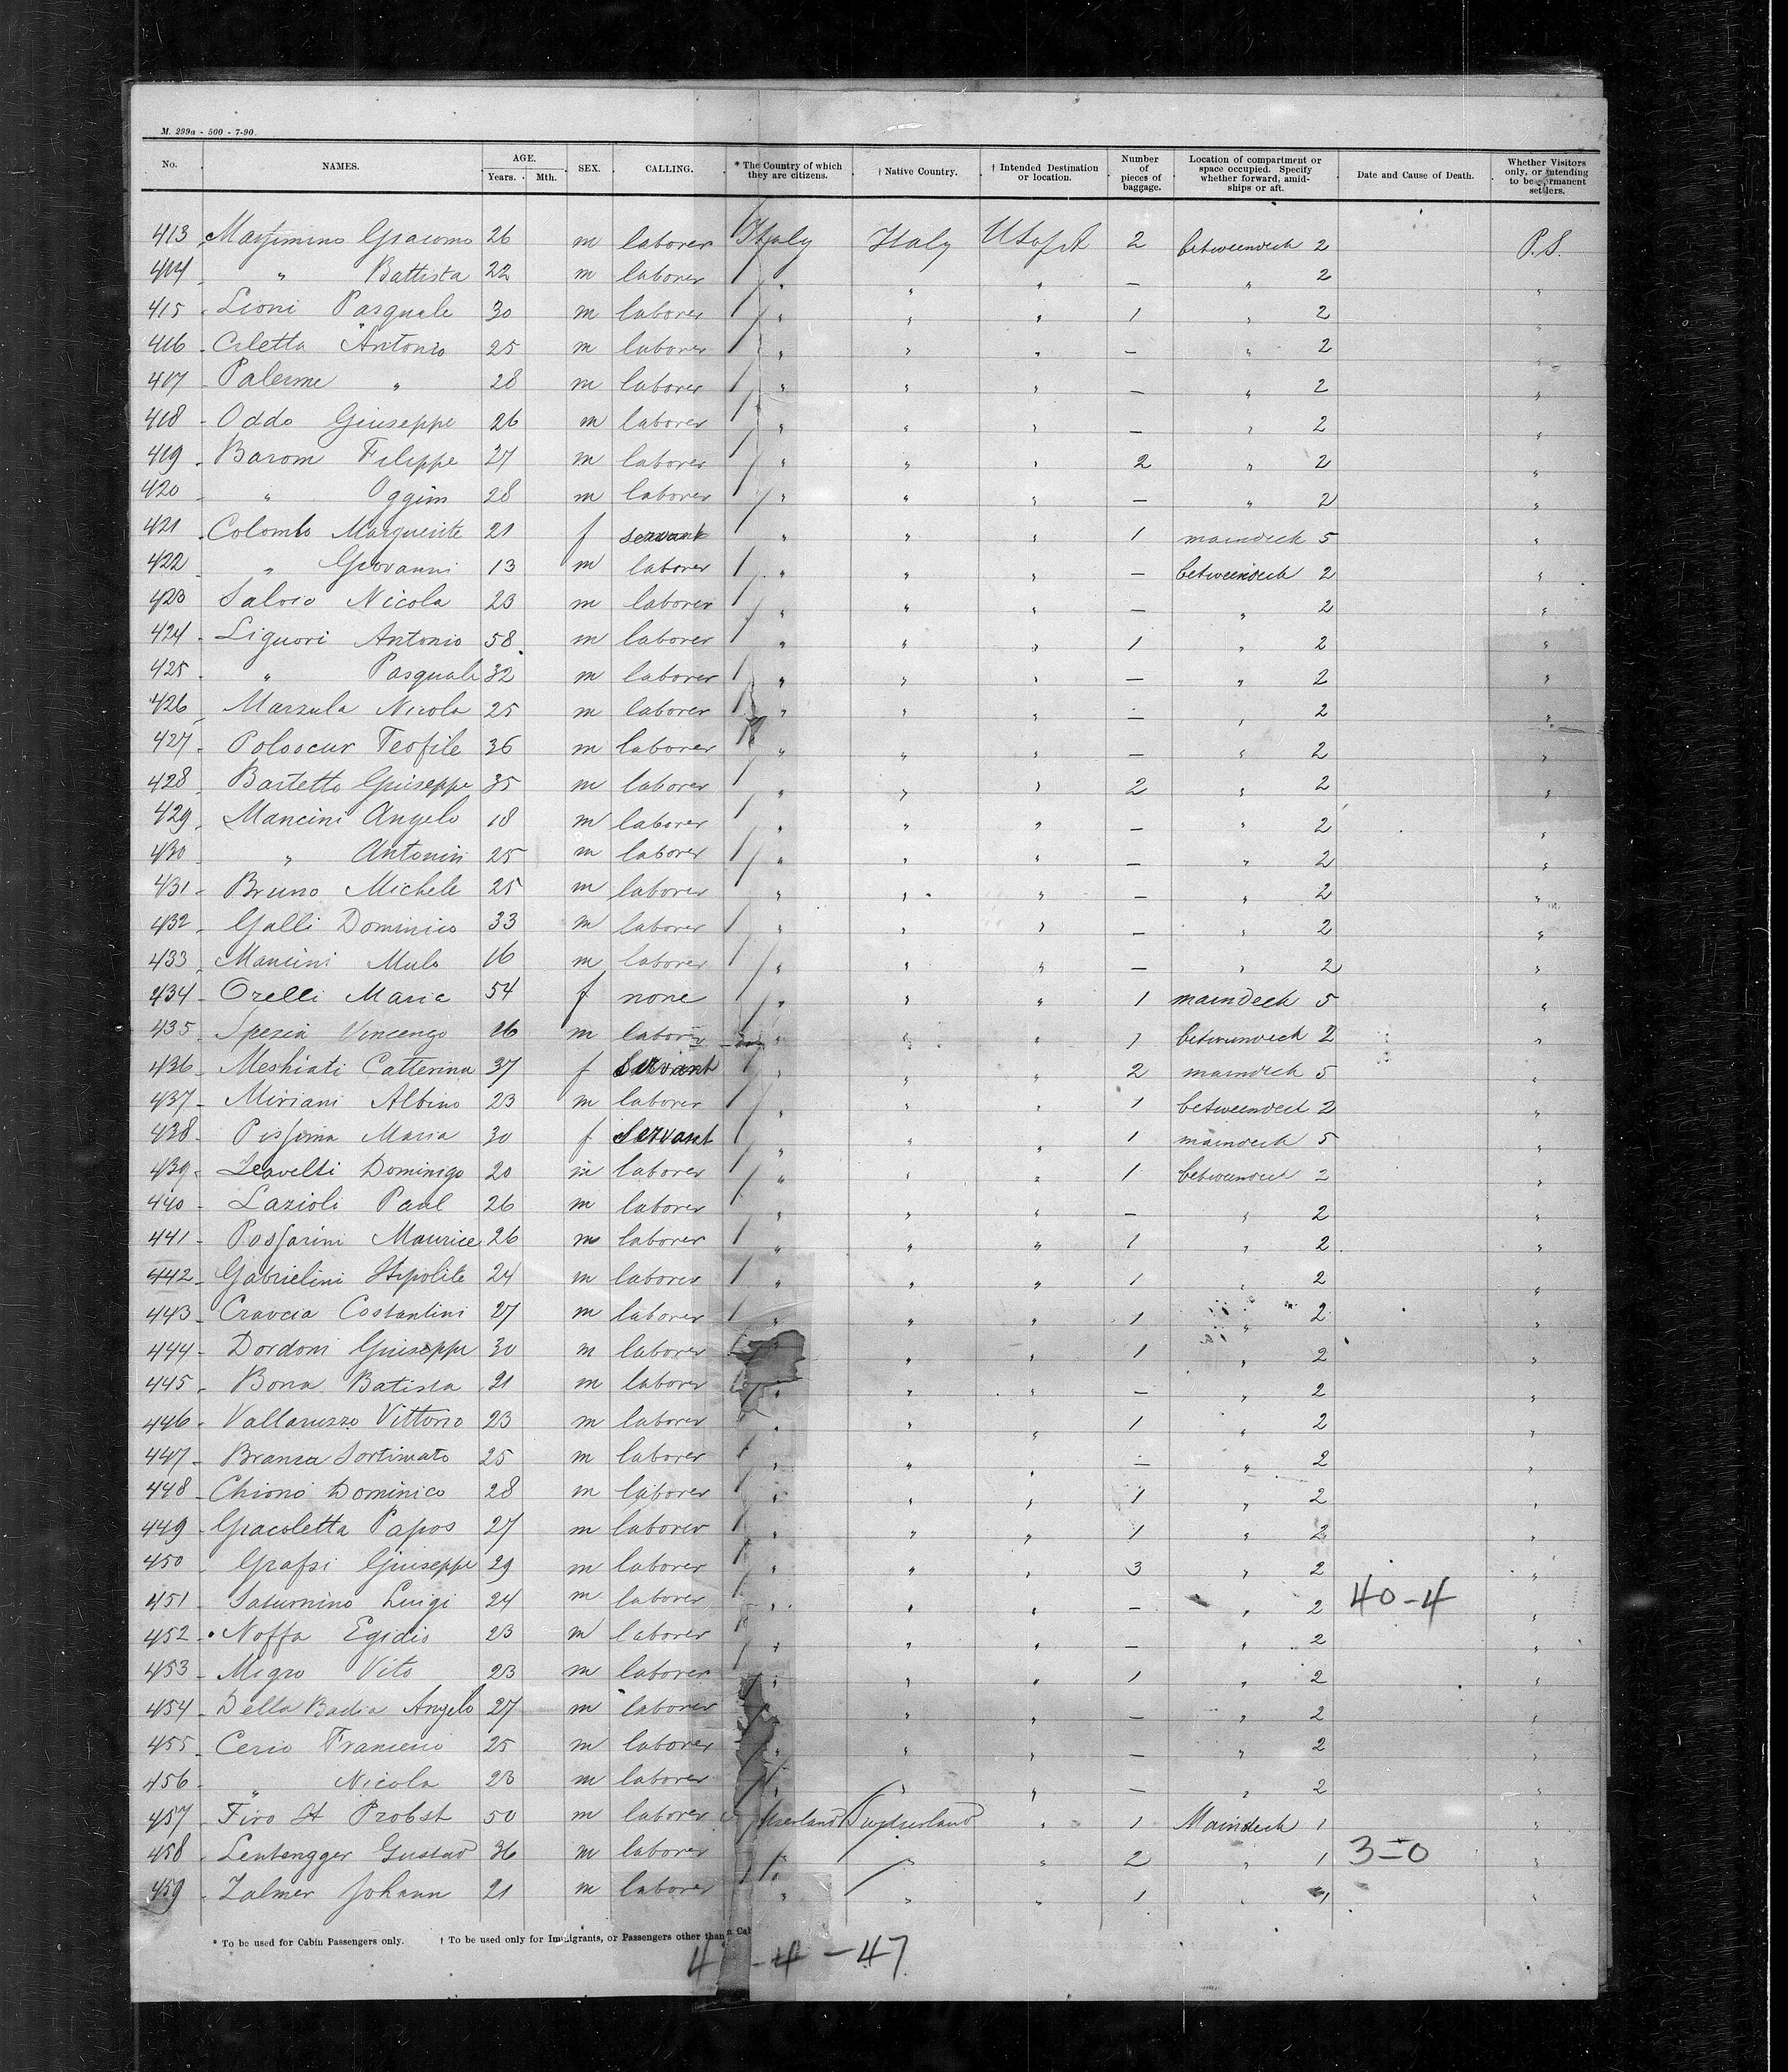 M. 299a - 500 - 7-90.
No. NAMES. AGE. Years. Mth. SEX. CALLING. * The Country of which they are citizens. † Native Country. † Intended Destination or location. Number of pieces of baggage. Location of compartment or space occupied. Specify whether forward, amidships or aft. Date and Cause of Death. Whether Visitors only, or intending to be permanent settlers.
413 Giacomo 26 m laborer Italy Italy U S of A 2 betweendeck 2 P.S.
414 " Battista 22 m laborer " " " — " 2 "
415 Lioni Pasquale 30 m laborer " " " 1 " 2 "
416 Celetta Antonio 25 m laborer " " " — " 2 "
417 Palerme " 28 m laborer " " " — " 2 "
418 Oddo Giuseppe 26 m laborer " " " — " 2 "
419 Barom Filippe 27 m laborer " " " 2 " 2 "
420 " Oggim 28 m laborer " " " — " 2 "
421 Colombo Marguerite 21 f servant " " " 1 maindeck 5 "
422 " Giovanni 13 m laborer " " " — betweendeck 2 "
423 Salvio Nicola 23 m laborer " " " — " 2 "
424 Liguori Antonio 58 m laborer " " " 1 " 2 "
425 " Pasquale 32 m laborer " " " — " 2 "
426 Marzula Nicola 25 m laborer " " " — " 2 "
427 Poloscur Teofile 36 m laborer " " " — " 2 "
428 Bastetto Giuseppe 35 m laborer " " " 2 " 2 "
429 Mancini Angelo 18 m laborer " " " — " 2 "
430 " Antonin 25 m laborer " " " — " 2 "
431 Bruno Michele 25 m laborer " " " — " 2 "
432 Galli Dominico 33 m laborer " " " — " 2 "
433 Mancini Mulo 16 m laborer " " " — " 2 "
434 Orelli Maria 54 f none " " " 1 maindeck 5 "
435 Spezia Vincengo 16 m laborer " " " 1 betweendeck 2 "
436 Meshiati Catterina 37 f Servant " " " 2 maindeck 5 "
437 Miriani Albino 23 m laborer " " " 1 betweendeck 2 "
438 Pissima Maria 30 f Servant " " " 1 maindeck 5 "
439 Dominigo 20 m laborer " " " 1 betweendeck 2 "
440 Lazioli Paul 26 m laborer " " " — " 2 "
441 Possarini Maurice 26 m laborer " " " 1 " 2 "
442 Gabrielini Hipolite 24 m laborer " " " 1 " 2 "
443 Cravcia Costantini 27 m laborer " " " 1 " 2 "
444 Dordoni Giuseppe 30 m laborer " " " 1 " 2 "
445 Bona Batista 21 m laborer " " " — " 2 "
446 Vallaruzzo Vittorio 23 m laborer " " " 1 " 2 "
447 Branca 25 m laborer " " " — " 2 "
448 Chiono Dominico 28 m laborer " " " 1 " 2 "
449 Giacoletta Papos 27 m laborer " " " 1 " 2 "
450 Grassi Giuseppe 29 m laborer " " " 3 " 2 "
451 Saturnino Luigi 24 m laborer " " " — " 2 40-4 "
452 Noffa Egidio 23 m laborer " " " — " 2 "
453 Migro Vito 23 m laborer " " " 1 " 2 "
454 Della Badia Angelo 27 m laborer " " — " 2 "
455 Cerio 25 m laborer " " " — " 2 "
456 " Nicola 23 m laborer " " " — " 2 "
457 Firo St Probst 50 m laborer " 1 Maindeck 1 "
458 Lentengger Gustav 36 m laborer " " " 2 " 1 3-0 "
459 Zalmer Johann 21 m laborer " " " 1 " 1 "
* To be used for Cabin Passengers only. † To be used only for Immigrants, or Passengers other than Cab
4 -4 -47